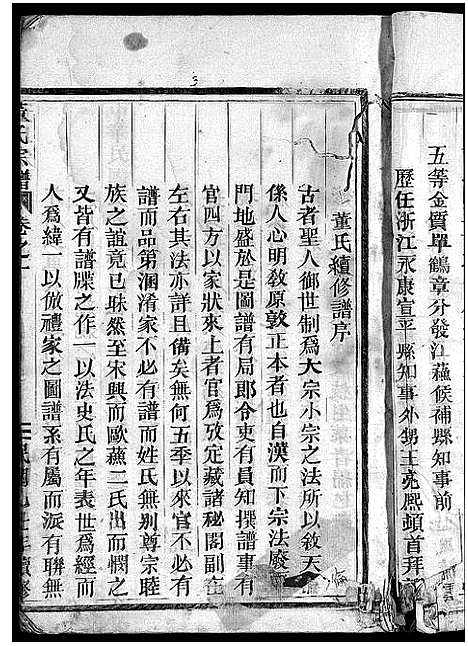 五等金質單鶴章分發江蘇候補縣知事前
歷任浙江永康宣平縣知事外甥王亮熙頭首拜
3
董氏續修譜序
古者聖人御世制爲大宗小宗之法所以敘天
係人心明敎原敦正本者也自漢而下宗法廢
門地盛於是圖譜有局郎令吏有員知撰譜事有
官四方以家狀來上者官爲攷定藏諸秘閣副在
左右其法亦詳且備矣無何五季以來官不必有
譜而品第溷淆家不必有譜而姓氏無别尊宗睦
族之誼竟已昧然至宋興而歐蘇二氏出而憫之
又皆有譜牒之作一以法史氏之年表世爲經而
人爲緯一以倣禮家之圖譜系有屬而派有聯無
氏宗譜
卷之一